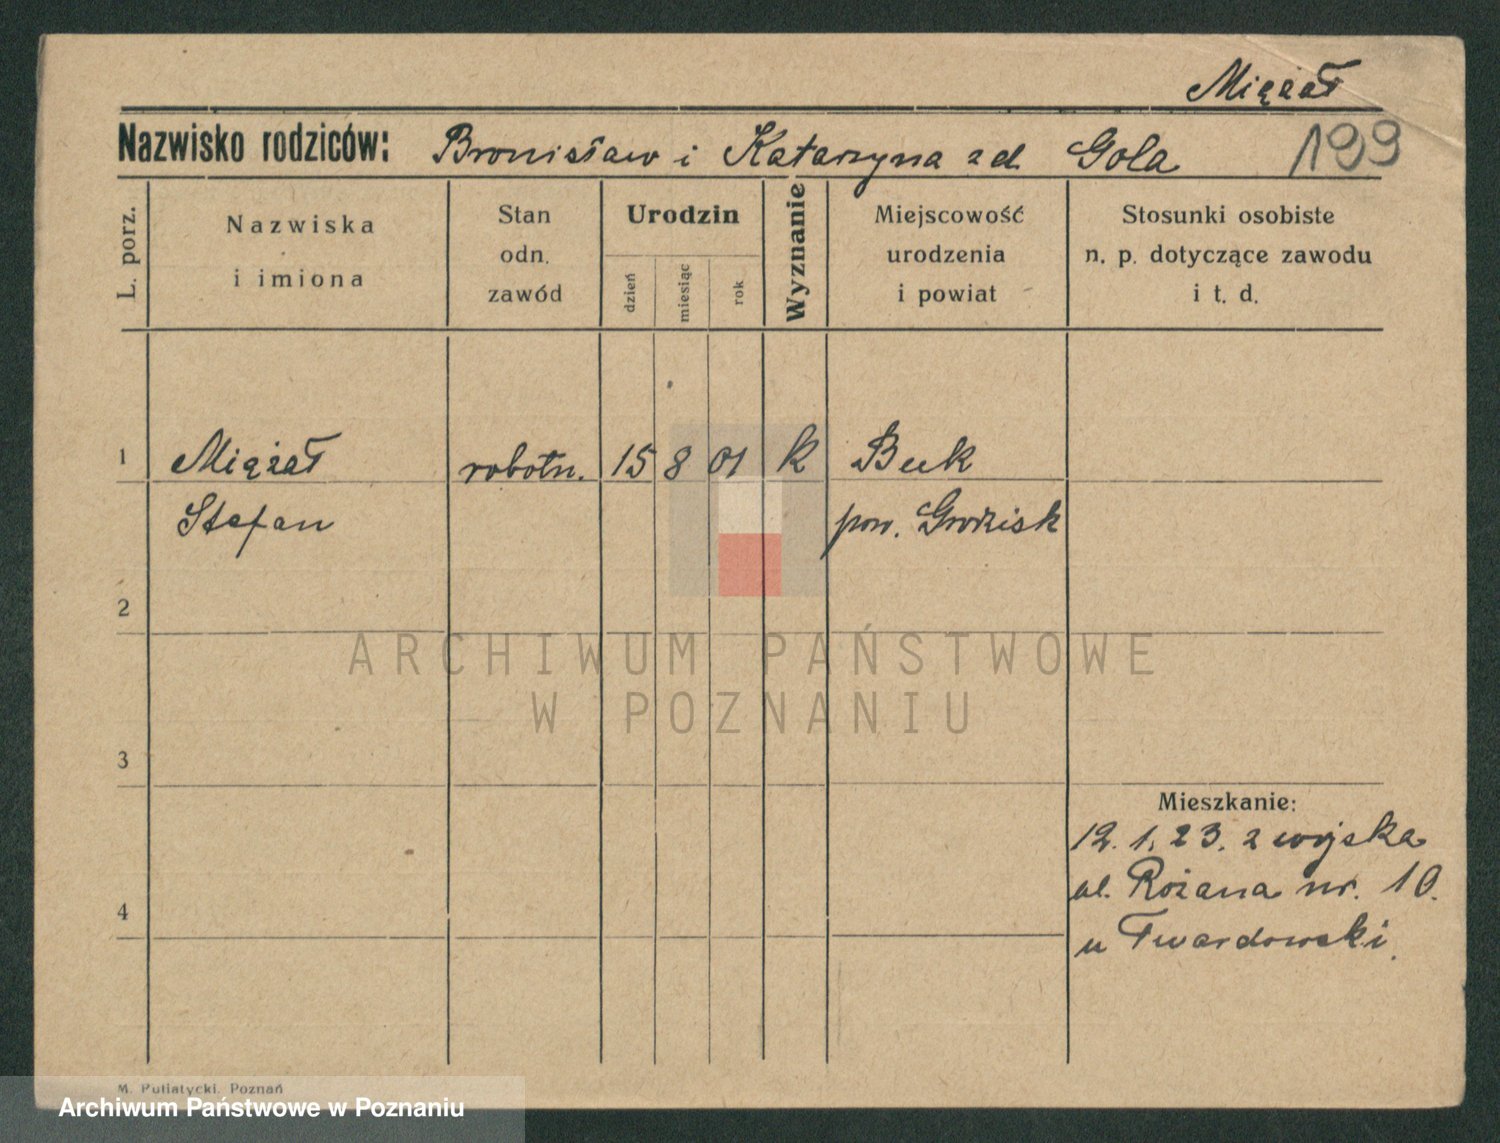 Miążał
Nazwisko rodziców: Bronisław i Katarzyna zd Gola 199
L. porz.
Nazwiska
i imiona
Stan
odn.
zawód
Urodzin
dzień
miesiąc
rok
Wyznanie
Miejscowość
urodzenia
i powiat
Stosunki osobiste
n. p. dotyczące zawodu
i t. d.
1 Miążał robotn. 15 8 01 k Buk
Stefan pow. Grodzisk
2
ARCHIWUM PAŃSTWOWE
W POZNANIU
3
Mieszkanie:
12. 1. 23. z wojska
ul. Różana nr. 10.
4
u Twardowski.
M. Putiatycki, Poznań
Archiwum Państwowe w Poznaniu